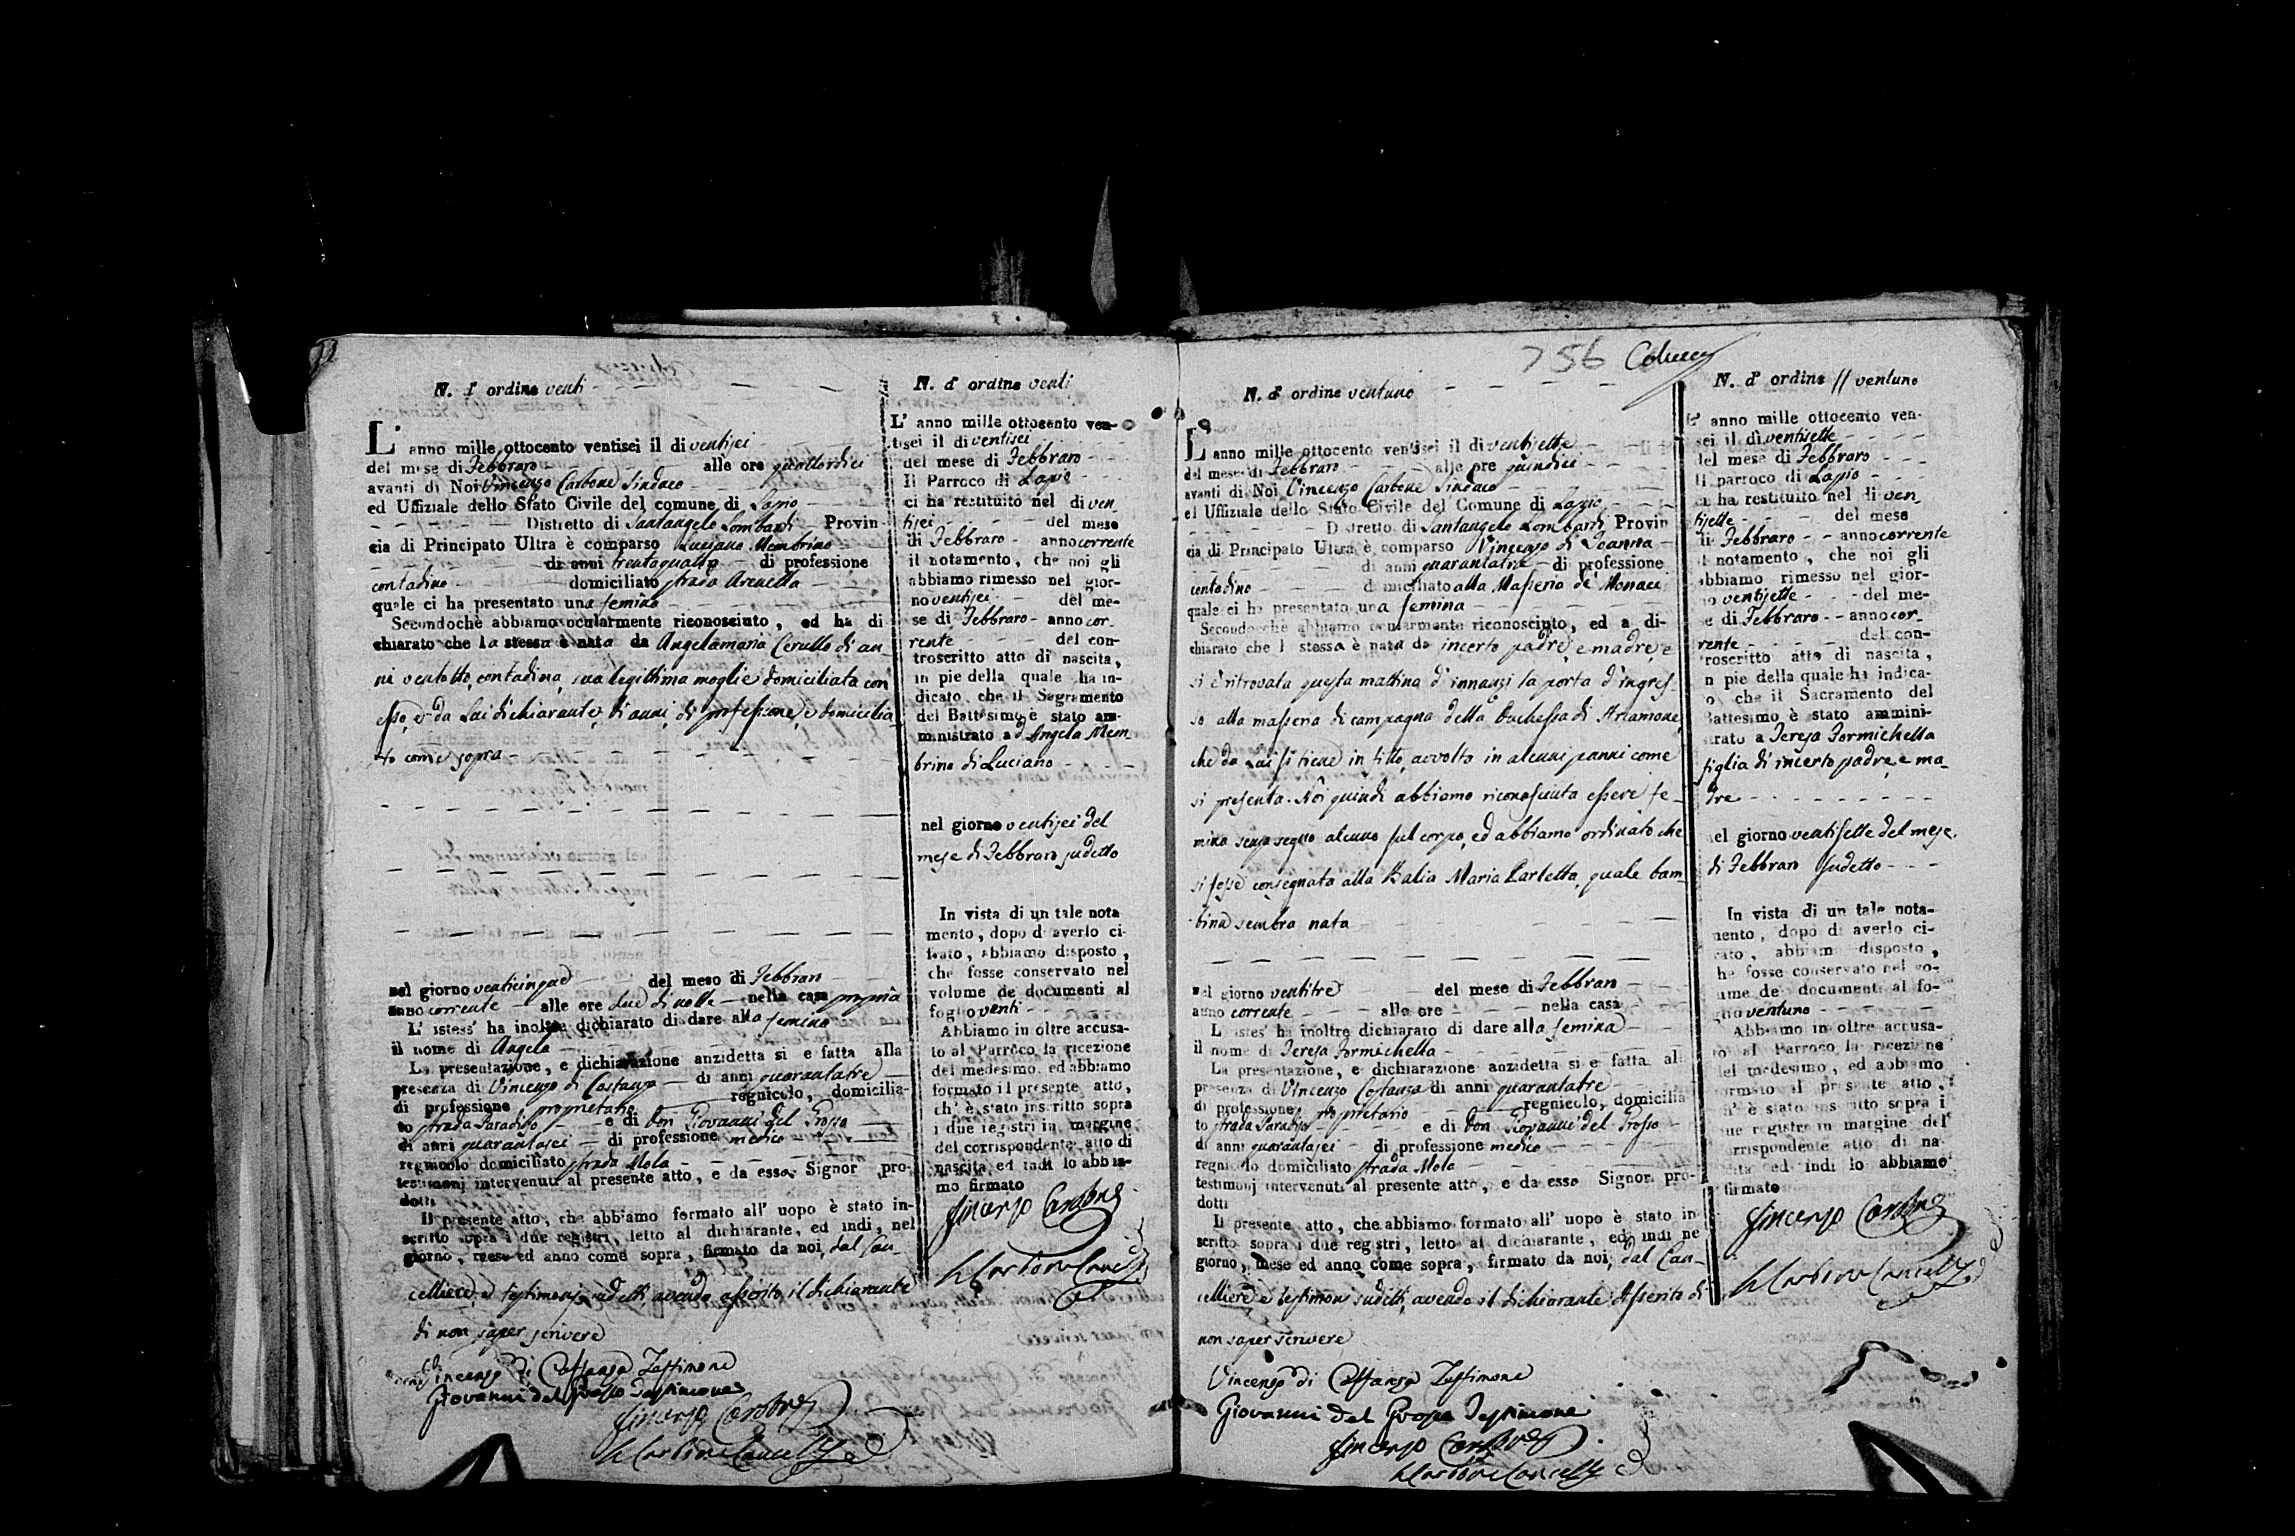 N. d' ordine venti
L' anno mille ottocento ventisei il di ventisei
del mese di Febbraro alle ore quattordici
avanti di Noi Vincenzo Carbone Sindaco
ed Uffiziale dello Stato Civile del comune di Lapio
Distretto di Santangelo Lombardi Provin-
cia di Principato Ultra è comparso Luciano Membrino
di anni trentaquattro di professione
contadino domiciliato strada Arenella
quale ci ha presentato una femina
Secondochè abbiamo ocularmente riconosciuto, ed ha di
chiarato che la stessa è nata da Angelamaria Cerullo di an-
ni ventotto, contadina, sua legittima moglie domiciliata con
esso, e da Lui dichiarante, di anni, di professione, e domicilia-
to come sopra
nel giorno venticinque del mese di Febbraro
anno corrente alle ore due di notte nella casa propria
L' istess' ha inoltre dichiarato di dare alla femina
il nome di Angela
La presentazione, e dichiarazione anzidetta si e fatta alla
presenza di Vincenzo di Costanzo di anni quarantatre
di professione proprietario regnicolo, domicilia-
to strada Paradiso e di Don Giovanni del Grosso
di anni quarantasei di professione medico
regnicolo domiciliato strada Mola
testimonj intervenuti al presente atto, e da esso Signor pro-
dotti
Il presente atto, che abbiamo formato all' uopo è stato in-
scritto sopra i due registri, letto al dichiarante, ed indi, nel
giorno, mese ed anno come sopra, firmato da noi, dal Can-
celliere, e testimonj sudetti avendo asserito il dichiarante
di non saper scrivere
Vincenzo di Costanza Testimone
Giovanni del Grosso Testimone
Vincenzo Carbone
Carbone Cancell.e
N. d' ordine venti
L' anno mille ottocento ven-
tisei il di ventisei
del mese di Febbraro
Il Parroco di Lapio
ci ha restituito nel di ven
tisei del mese
di Febbraro anno corrente
il notamento, che noi gli
abbiamo rimesso nel gior-
no ventisei del me-
se di Febbraro anno cor-
rente del con-
troscritto atto di nascita,
in pie della quale ha in-
dicato che il Sagramento
del Battesimo è stato am-
ministrato ad Angela Mem
brino di Luciano
nel giorno ventisei del
mese di Febbraro sudetto
In vista di un tale nota
mento, dopo d' averlo ci-
frato, abbiamo disposto,
che fosse conservato nel
volume de documenti al
foglio venti
Abbiamo in oltre accusa-
to al Parroco la ricezione
del medesimo, ed abbiamo
formato il presente atto,
ch' è stato inscritto sopra
i due registri in margine
del corrispondente atto di
nascita, ed indi lo abbia-
mo firmato
Vincenzo Carbone
Carbone Cancell.e
756 Colucci
N. d' ordine ventuno
L' anno mille ottocento ventisei il di ventisette
del mese di Febbraro alle ore quindici
avanti di Noi Vincenzo Carbone Sindaco
ed Uffiziale dello Stato Civile del Comune di Lapio
Distretto di Santangelo Lombardi Provin
cia di Principato Ultra è comparso Vincenzo di Joanna
di anni quarantatre di professione
contadino domiciliato alla Masseria de Monaci
quale ci ha presentato una femina
Secondochè abbiamo ocularmente riconosciuto, ed a di-
chiarato che l stessa è nata da incerto padre, e madre, e
si è ritrovata questa mattina d' innanzi la porta d' ingres-
so alla masseria di campagna della Duchessa di Artamone,
che da Lui si tiene in fitto, avvolta in alcuni panni come
si presenta. Noi quindi abbiamo riconosciuta essere fe-
mina senza segno alcuno sul corpo, ed abbiamo ordinato che
si fosse consegnata alla Balia Maria Carletta, quale bam-
bina sembra nata
nel giorno ventitre del mese di Febbraro
anno corrente alle ore nella casa
L' istes' ha inoltre dichiarato di dare alla femina
il nome di Teresa Formichella
La presentazione, e dichiarazione anzidetta si e fatta al
presenza di Vincenzo Costanza di anni quarantatre
di professione proprietario regnicolo, domicilia
to strada Paradiso e di Don Giovanni del Grosso
di anni quarantasei di professione medico
regnicolo domiciliato strada Mola
testimonj intervenuti al presente atto, e da esso Signor pro-
dotti
Il presente atto, che abbiamo formato all' uopo è stato in
scritto sopra i due registri, letto al dichiarante, ed indi ne
giorno, mese ed anno come sopra, firmato da noi, dal Can-
celliere e testimonj sudetti, avendo il dichiarante asserito di
non saper scrivere
Vincenzo di Costanza Testimone
Giovanni del Grosso Testimone
Vincenzo Carbone
Carbone Cancell.e
N. d' ordine // ventuno
L' anno mille ottocento ven-
sei il di ventisette
del mese di Febbraro
Il parroco di Lapio
ci ha restituito nel di ven
tisette del mese
di Febbraro anno corrente
il notamento, che noi gli
abbiamo rimesso nel gior-
no ventisette del me-
se di Febbraro anno cor-
rente del con-
troscritto atto di nascita,
in pie della quale ha indica-
to che il Sacramento del
Battesimo è stato ammini-
strato a Teresa Formichella
figlia di incerto padre, e ma-
dre
nel giorno ventisette del mese
di Febbraro sudetto
In vista di un tale nota-
mento, dopo di averlo ci-
frato, abbiamo disposto,
che fosse conservato nel vo-
lume de' documenti al fo-
glio ventuno
Abbiamo in oltre accusa-
to al Parroco la ricezione
del medesimo, ed abbiamo
formato il presente atto,
ch' è stato inscritto sopra i
due registri in margine del
corrispondente atto di na-
scita ed indi lo abbiamo
firmato
Vincenzo Carbone
Carbone Cancell.e